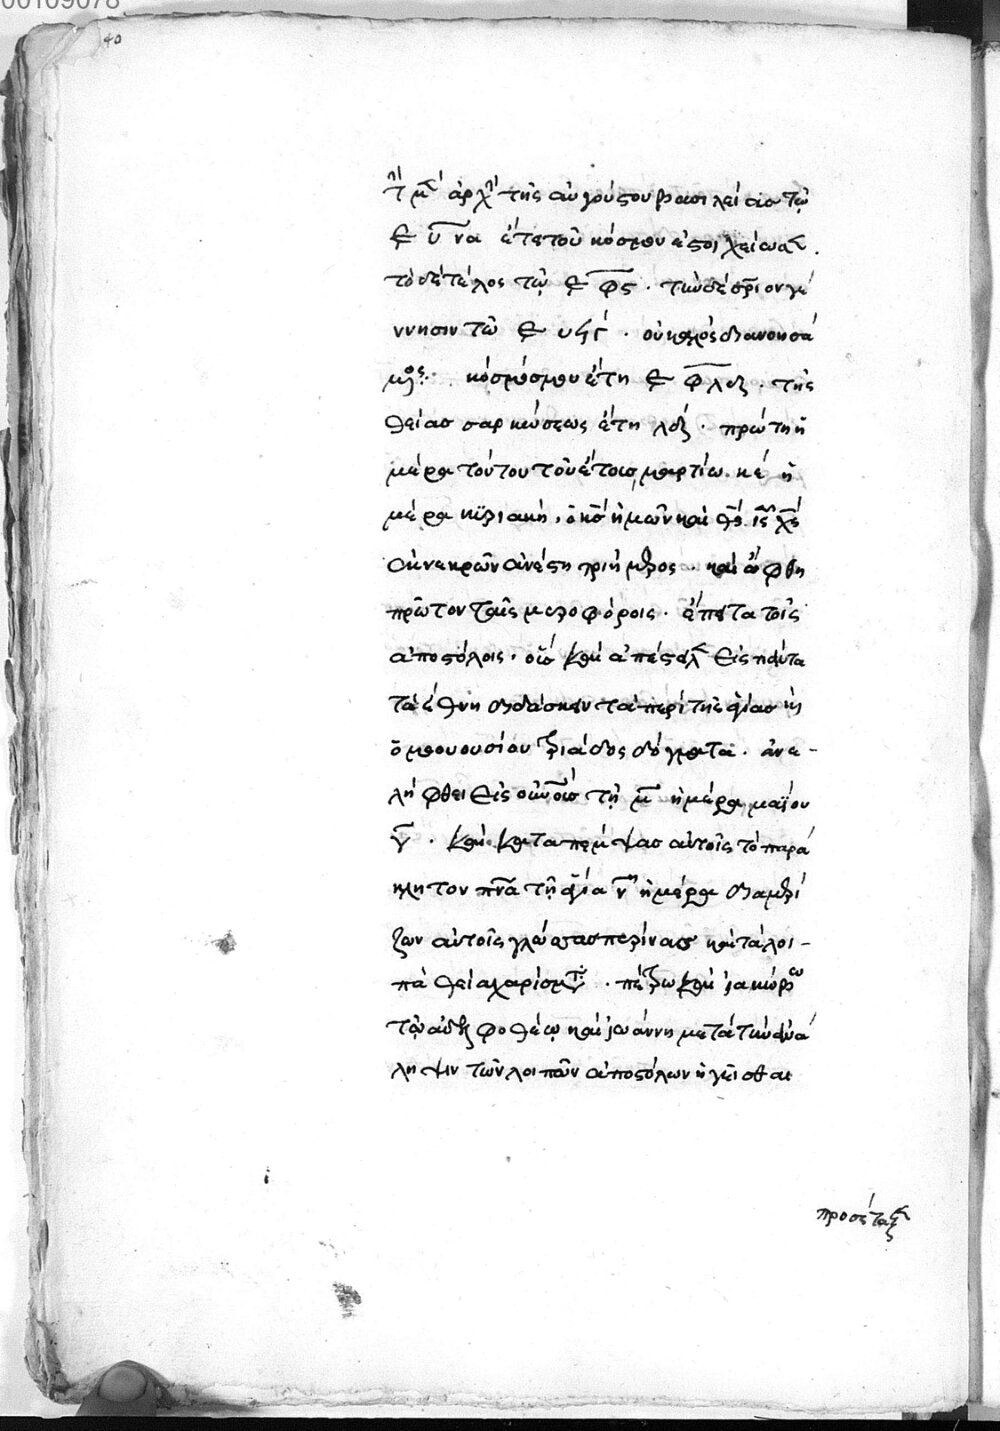 00109078
40
τὴν μὲν ἀρχὴν τῆς αὐγούστου βασιλείας τῷ
͵ε υνα ἔτει τοῦ κόσμου ἐστοιχείωσαν.
τὸ δὲ τέλος τῷ ͵ε φϛ. τὴν δὲ σωτήριον γέ
ννησιν τῶ ͵ε υϟγ.
κόσμου ἔτη ͵ε φλζ. τῆς
θείας σαρκώσεως ἔτη λζ. πρώτη ἡ
μέρα τούτου τοῦ ἔτους μαρτίω κε ἡ
μέρα κυριακή, ὁ κς ἡμῶν καὶ θς ις χς
ἐκ νεκρῶν ἀνέστη τριήμερος. καὶ ὤφθη
πρῶτον ταῖς μυροφόροις. ἔπειτα τοῖς
ἀποστόλοις. οὓς καὶ ἀπέστειλεν εἰς πάντα
τὰ ἔθνη διδάσκειν τὰ περὶ τῆς ἁγίας καὶ
ὁμοουσίου τριάδος δόγματα. ἀνε-
λήφθει εἰς οὐνοὺς τῇ μ ἡμέρα μαΐου
γ. καὶ καταπέμψας αὐτοῖς τὸ παρά
κλητον πνα τῇ ἁγία ν ἡμέρα διαμερί
ζον αὐτοῖς γλώσσας πυρίνας καὶ τὰ λοι-
πὰ θεῖα χαρίσματα. πέτρω καὶ ἰακώβω
τῷ ἀδελφοθέῳ καὶ ἰωάννη μετὰ τὴν ἀνά
ληψιν τῶν λοιπῶν ἀποστόλων ἡγεῖσθαι
προσέταξεν